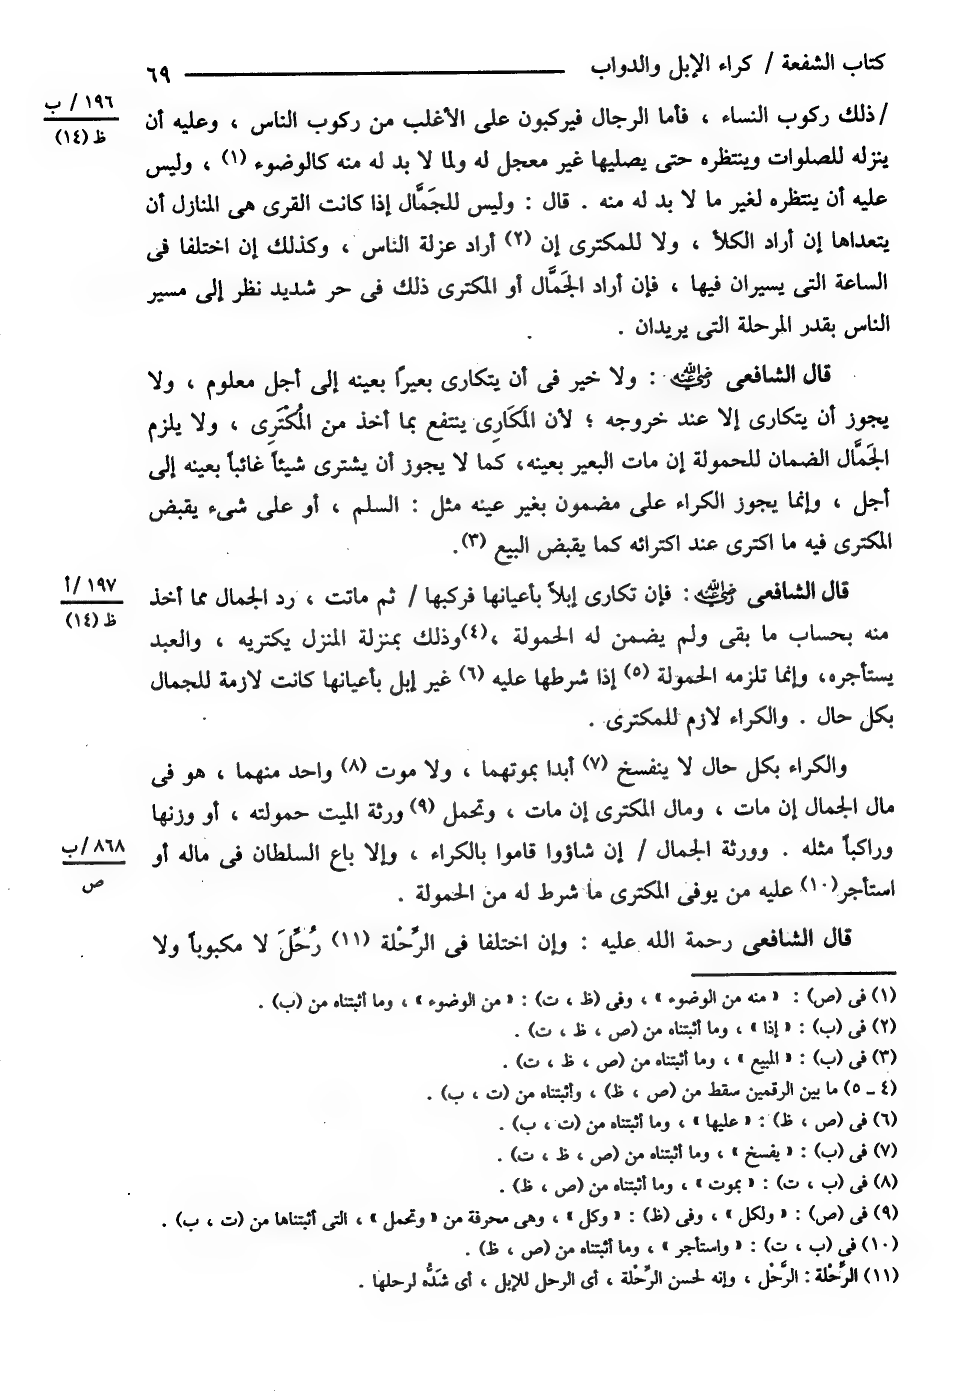 كتاب الشفعة / كراء الإبل والدواب ـــــــــــــــــــــ ٦٩
١٩٦ / ب
ظ (١٤)
/ ذلك ركوب النساء ، فأما الرجال فيركبون على الأغلب من ركوب الناس ، وعليه أن
ينزله للصلوات وينتظره حتى يصليها غير معجل له ولما لا بد له منه كالوضوء (١) ، وليس
عليه أن ينتظره لغير ما لا بد له منه . قال : وليس للجَمَّال إذا كانت القرى هى المنازل أن
يتعداها إن أراد الكلأ ، ولا للمكترى إن (٢) أراد عزلة الناس ، وكذلك إن اختلفا فى
الساعة التى يسيران فيها ، فإن أراد الجَمَّال أو المكترى ذلك فى حر شديد نظر إلى مسير
الناس بقدر المرحلة التى يريدان .
قال الشافعى رضي الله عنه : ولا خير فى أن يتكارى بعيرًا بعينه إلى أجل معلوم ، ولا
يجوز أن يتكارى إلا عند خروجه ؛ لأن المَكَارِى ينتفع بما أخذ من المُكْتَرِى ، ولا يلزم
الجَمَّال الضمان للحمولة إن مات البعير بعينه، كما لا يجوز أن يشترى شيئاً غائباً بعينه إلى
أجل ، وإنما يجوز الكراء على مضمون بغير عينه مثل : السلم ، أو على شىء يقبض
المكترى فيه ما اكترى عند اكترائه كما يقبض البيع (٣).
١٩٧ /أ
ظ (١٤)
قال الشافعى رضي الله عنه : فإن تكارى إبلاً بأعيانها فركبها / ثم ماتت ، رد الجمال مما أخذ
منه بحساب ما بقى ولم يضمن له الحمولة ،(٤)وذلك بمنزلة المنزل يكتريه ، والعبد
يستأجره، وإنما تلزمه الحمولة (٥) إذا شرطها عليه (٦) غير إبل بأعيانها كانت لازمة للجمال
بكل حال . والكراء لازم للمكترى .
والكراء بكل حال لا ينفسخ (٧) أبدا بموتهما ، ولا موت (٨) واحد منهما ، هو فى
مال الجمال إن مات ، ومال المكترى إن مات ، وتحمل (٩) ورثة الميت حمولته ، أو وزنها
وراكباً مثله . وورثة الجمال / إن شاؤوا قاموا بالكراء ، وإلا باع السلطان فى ماله أو
٨٦٨ /ب
ص
استأجر(١٠) عليه من يوفى المكترى ما شرط له من الحمولة .
قال الشافعى رحمة الله عليه : وإن اختلفا فى الرِّحْلة (١١) رُحِّلَ لا مكبوباً ولا
(١) فى (ص) : « منه من الوضوء » ، وفى (ظ ، ت) : « من الوضوء » ، وما أثبتناه من (ب) .
(٢) فى (ب) : « إذا » ، وما أثبتناه من (ص ، ظ ، ت) .
(٣) فى (ب) : « المبيع » ، وما أثبتناه من (ص ، ظ ، ت) .
(٤ ـ ٥) ما بين الرقمين سقط من (ص ، ظ) ، وأثبتناه من (ت ، ب) .
(٦) فى (ص ، ظ) : « عليها » ، وما أثبتناه من (ت ، ب) .
(٧) فى (ب) : « يفسخ » ، وما أثبتناه من (ص ، ظ ، ت) .
(٨) فى (ب ، ت) : « بموت » ، وما أثبتناه من (ص ، ظ) .
(٩) فى (ص) : « ولكل » ، وفى (ظ) : « وكل » ، وهى محرفة من « وتحمل » ، التى أثبتناها من (ت ، ب) .
(١٠) فى (ب ، ت) : « واستأجر » ، وما أثبتناه من (ص ، ظ) .
(١١) الرِّحْلة : الرَّحْل ، وإنه لحسن الرِّحْلة ، أى الرحل للإبل ، أى شَدُّه لرحلها .